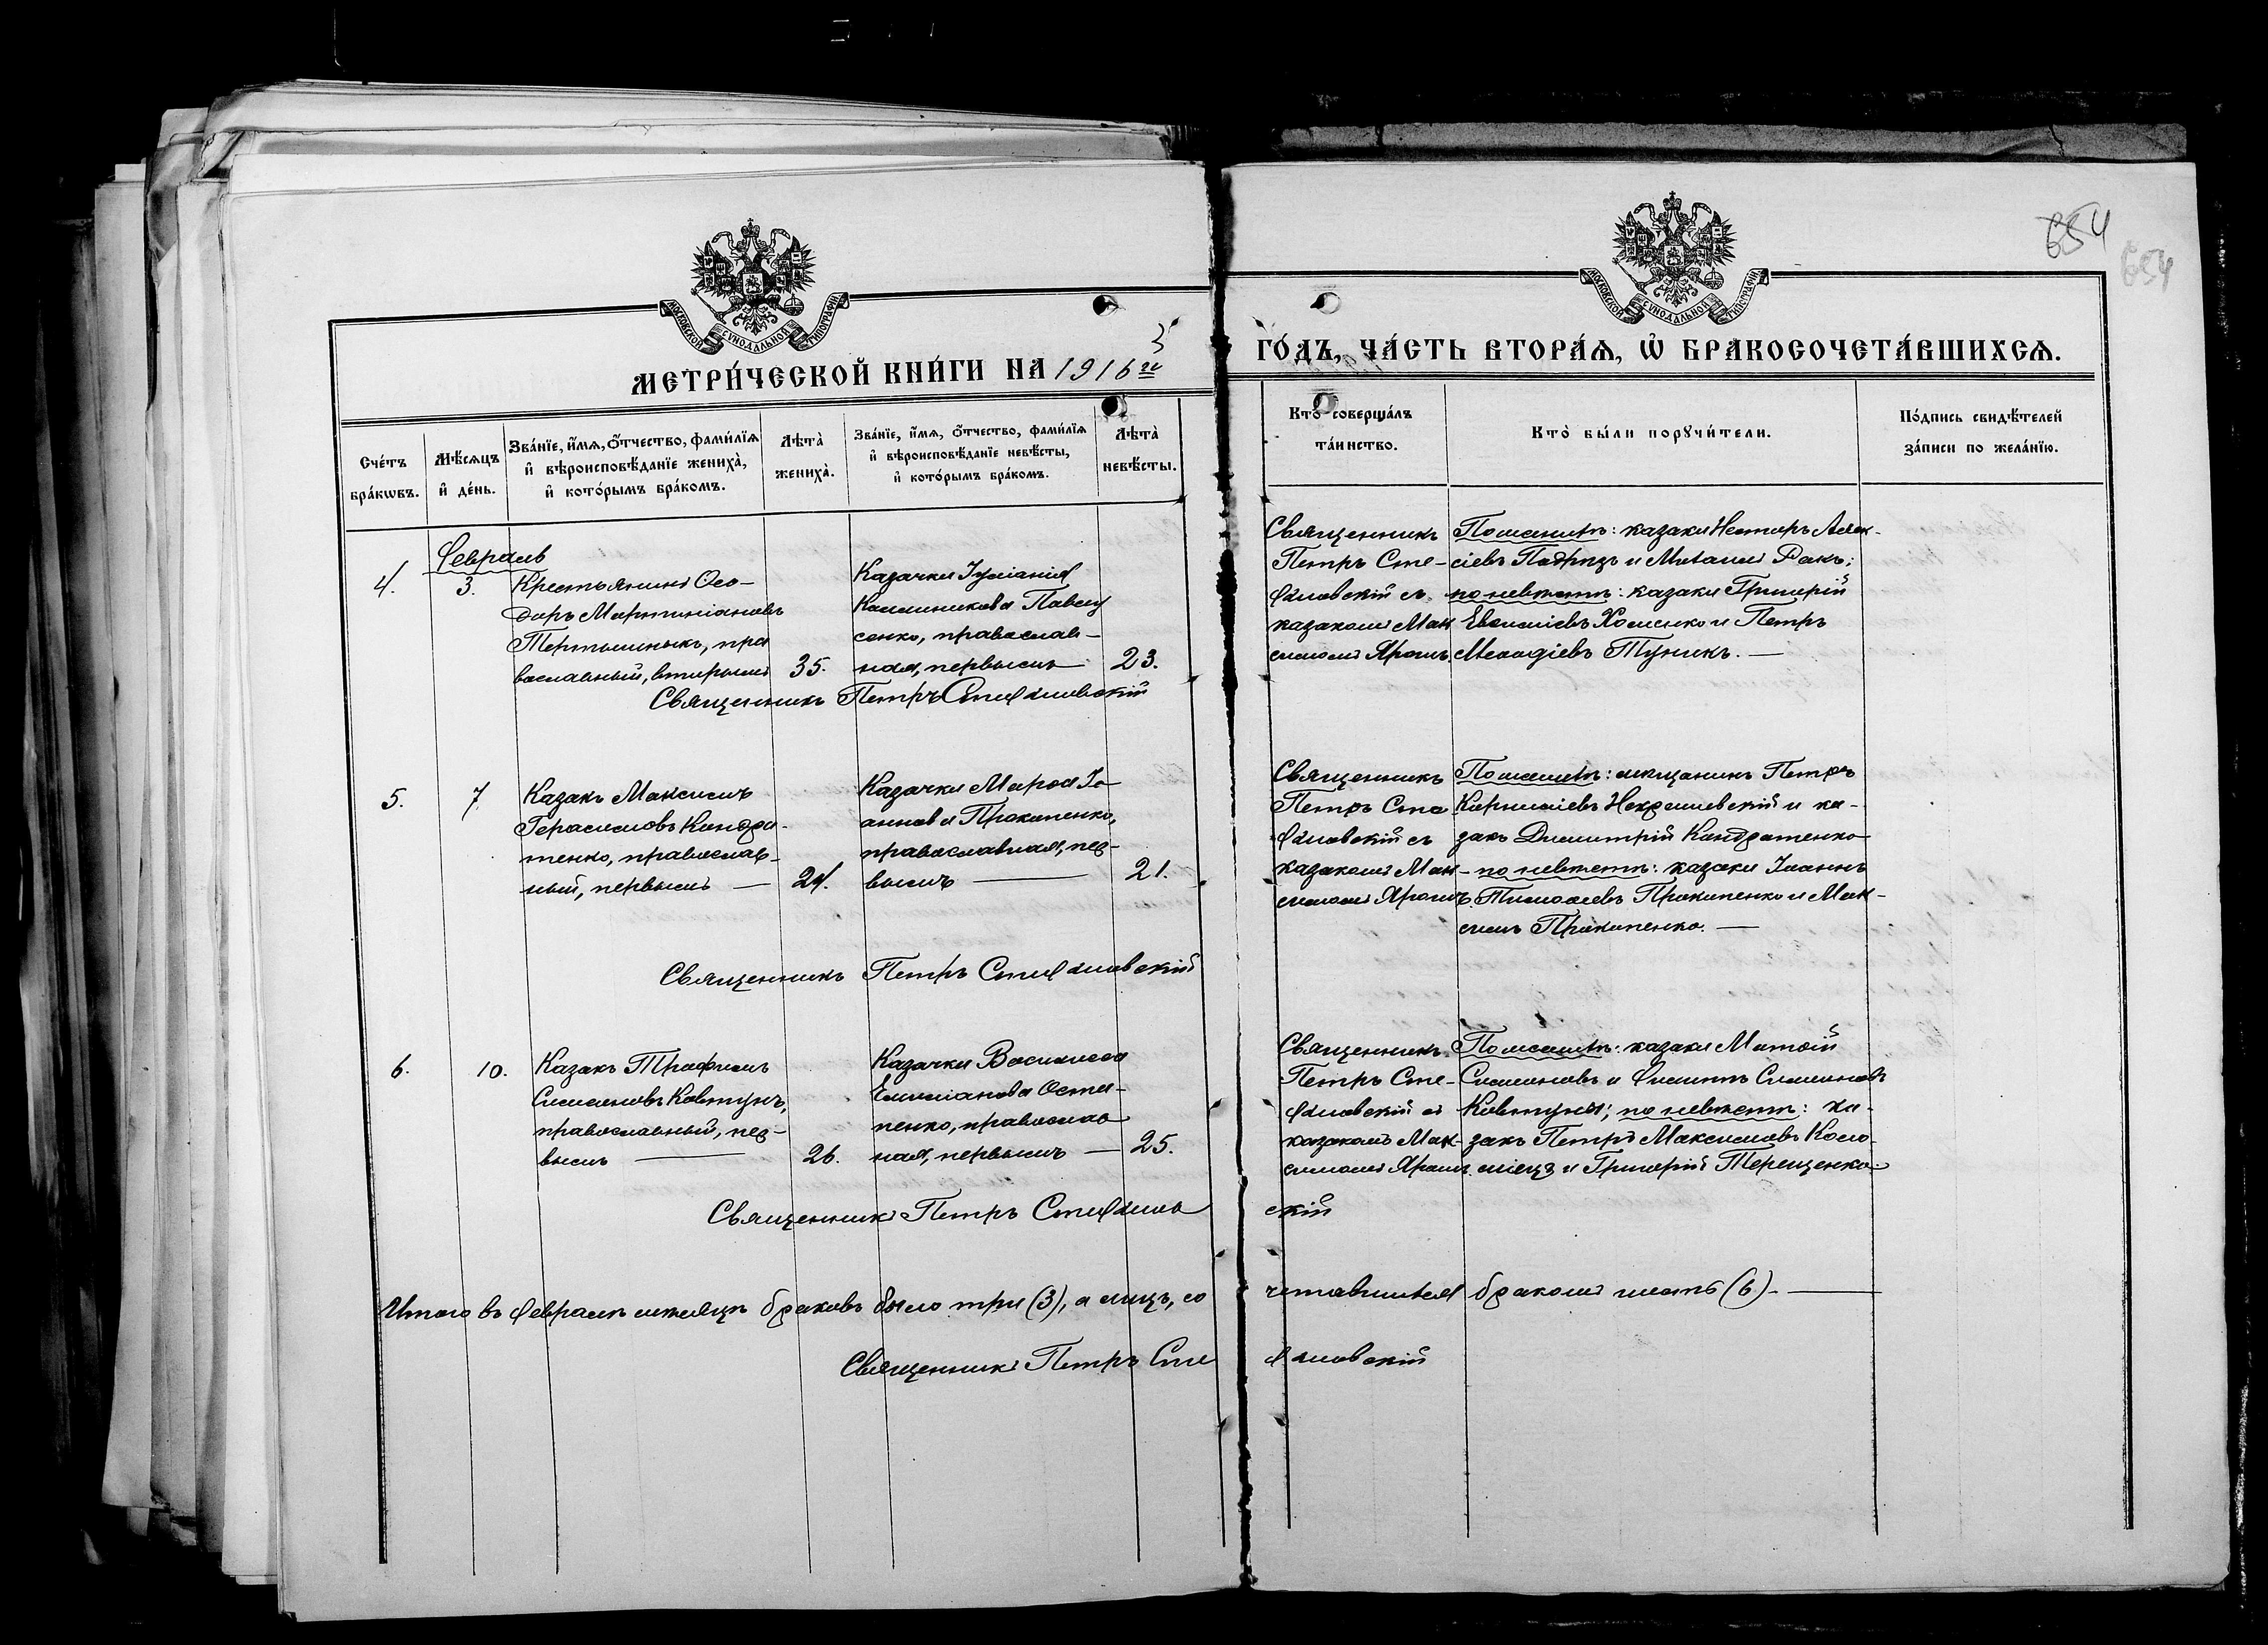 654
654
МОСКОВСКОЙ СѴНОДАЛЬНОЙ ТИПОГРАФІИ
МОСКОВСКОЙ СѴНОДАЛЬНОЙ ТИПОГРАФІИ
МЕТРИ́ЧЕСКОЙ КНИ́ГИ НА 1916 й
ГО́ДЪ, ЧА́СТЬ ВТОРА́Ѧ, Ѡ҆ БРАКОСОЧЕТА́ВШИХСѦ.
Сче́тъ бра́кѡвъ.
Мѣ́сѧцъ и҆ де́нь.
Зва́нїе, и҆́мѧ, ѻ҆́тчество, фами́лїѧ и҆ вѣроисповѣ́данїе жениха̀, и҆ кото́рымъ бра́комъ.
Лѣ́та̀ жениха̀.
Зва́нїе, и҆́мѧ, ѻ҆́тчество, фами́лїѧ и҆ вѣроисповѣ́данїе невѣ́сты, и҆ кото́рымъ бра́комъ.
Лѣ́та̀ невѣ́сты.
Кто̀ соверша́лъ та́инство.
Кто̀ бы́ли порꙋчи́тели.
По́дпись свидѣ́телей за́писи по жела́нїю.
Февраль
4.
3.
Крестьянинъ Ѳео-
доръ Мартиніановъ
Тертышныкъ, пра
вославный, вторымъ
35.
Казачка Іуліанія
Каллиникова Павлу
сенко, православ-
ная, первымъ
23.
Священникъ
Петръ Сте-
фановскій съ
казакомъ Мак
симомъ Ярошъ.
По женихѣ: казаки Несторъ Алек-
сіевъ Подризъ и Михаилъ Ракъ;
по невѣстѣ: казаки Григорій
Евѳиміевъ Хоменко и Петръ
Меѳодіевъ Туникъ.
Священникъ Петръ Стефановскій
5.
7
Казакъ Максимъ
Герасимовъ Кондра-
тенко, православ-
ный, первымъ
24.
Казачка Марѳа Іо-
аннова Прокопенко,
православная, пер-
вымъ
21.
Священникъ
Петръ Сте
фановскій съ
казакомъ Мак-
симомъ Ярошъ.
По женихѣ: мѣщанинъ Петръ
и ка-
закъ Димитрій Кондратенко
по невѣстѣ: казаки Іоаннъ
Тимоѳеевъ Прокопенко и Мак-
симъ Прокопенко.
Священникъ Петръ Стефановскій
6.
10.
Казакъ Трофимъ
Симеоновъ Ковтунъ,
православный, пер-
вымъ
26.
Казачка Василисса
Емиліанова Оста-
пенко, православ
ная, первымъ
25.
Священникъ
Петръ Сте-
фановскій съ
казакомъ Мак-
симомъ Ярошъ.
По женихѣ: казаки Матѳій
Симеоновъ и Филиппъ Симеоновъ
Ковтуны; по невѣстѣ: ка-
закъ Петръ Максимовъ Коло-
міецъ и Григорій Терещенко.
Священникъ Петръ Стефановскій
Итого въ Февралѣ мѣсяцѣ браковъ было три (3), а лицъ, сочетавшихся бракомъ шесть (6).
Священникъ Петръ Стефановскій